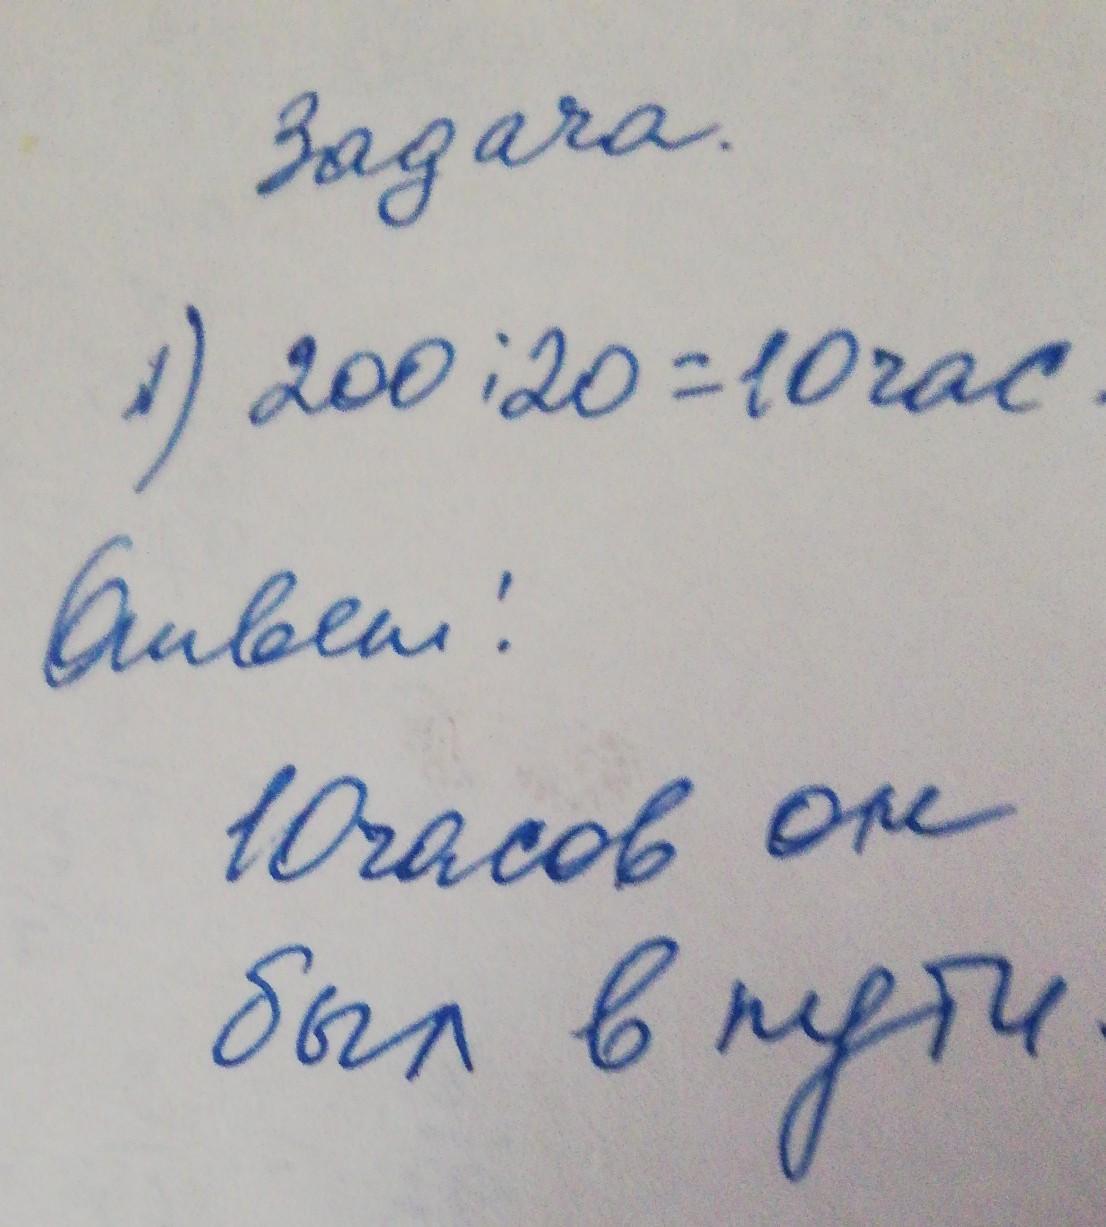 Задача.
1) 200:20=10час.
Ответ:
10часов он
был в пути.